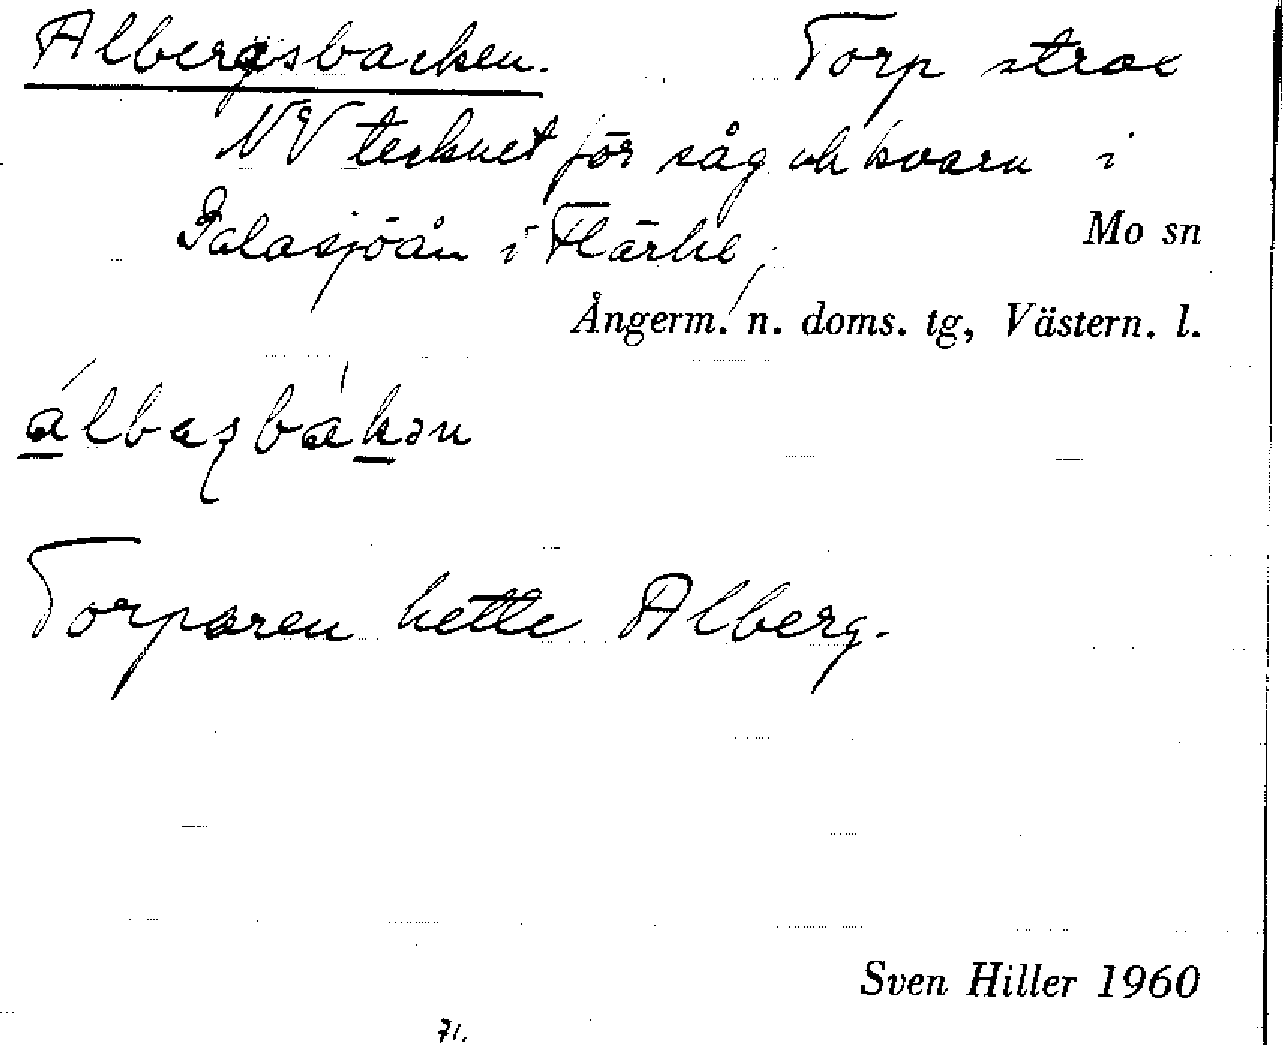 Albergsbacken. Torp strax
NV tecknet för såg och kvarn i
Galasjöån i Flärke, Mo sn
Ångerm. n. doms. tg, Västern. l.
Torparen hette Alberg.
Sven Hiller 1960
71.